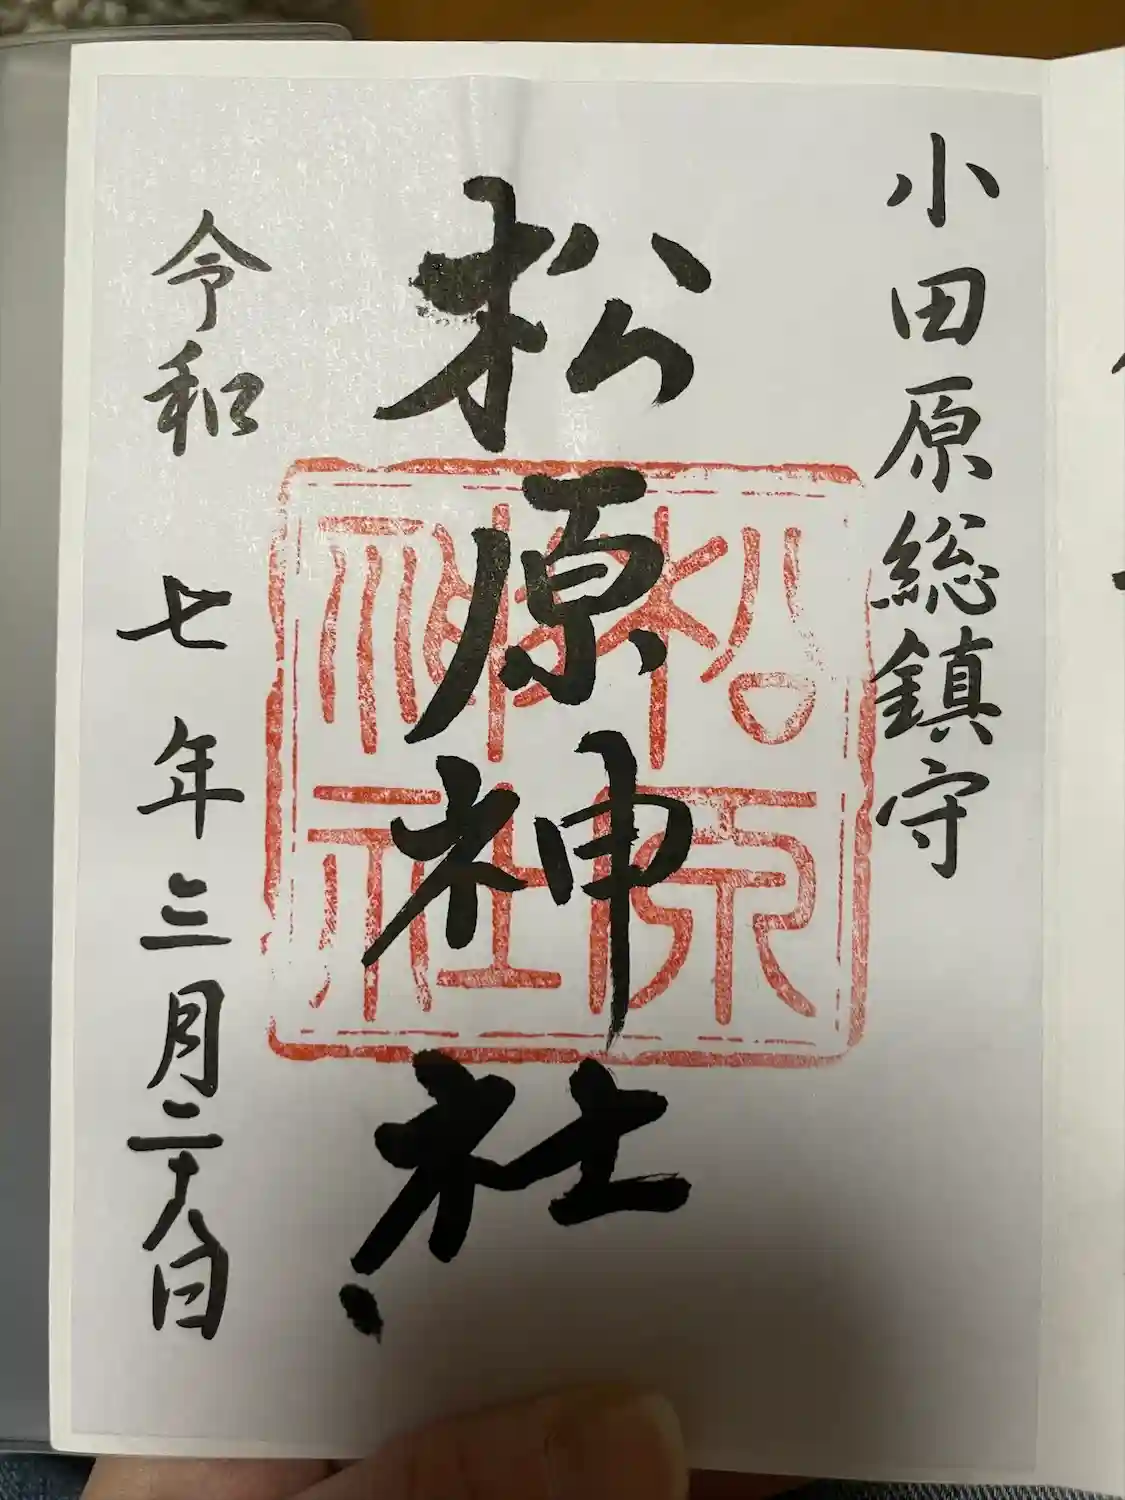 小田原総鎮守
松原神社
松原神社
令和七年三月二十八日